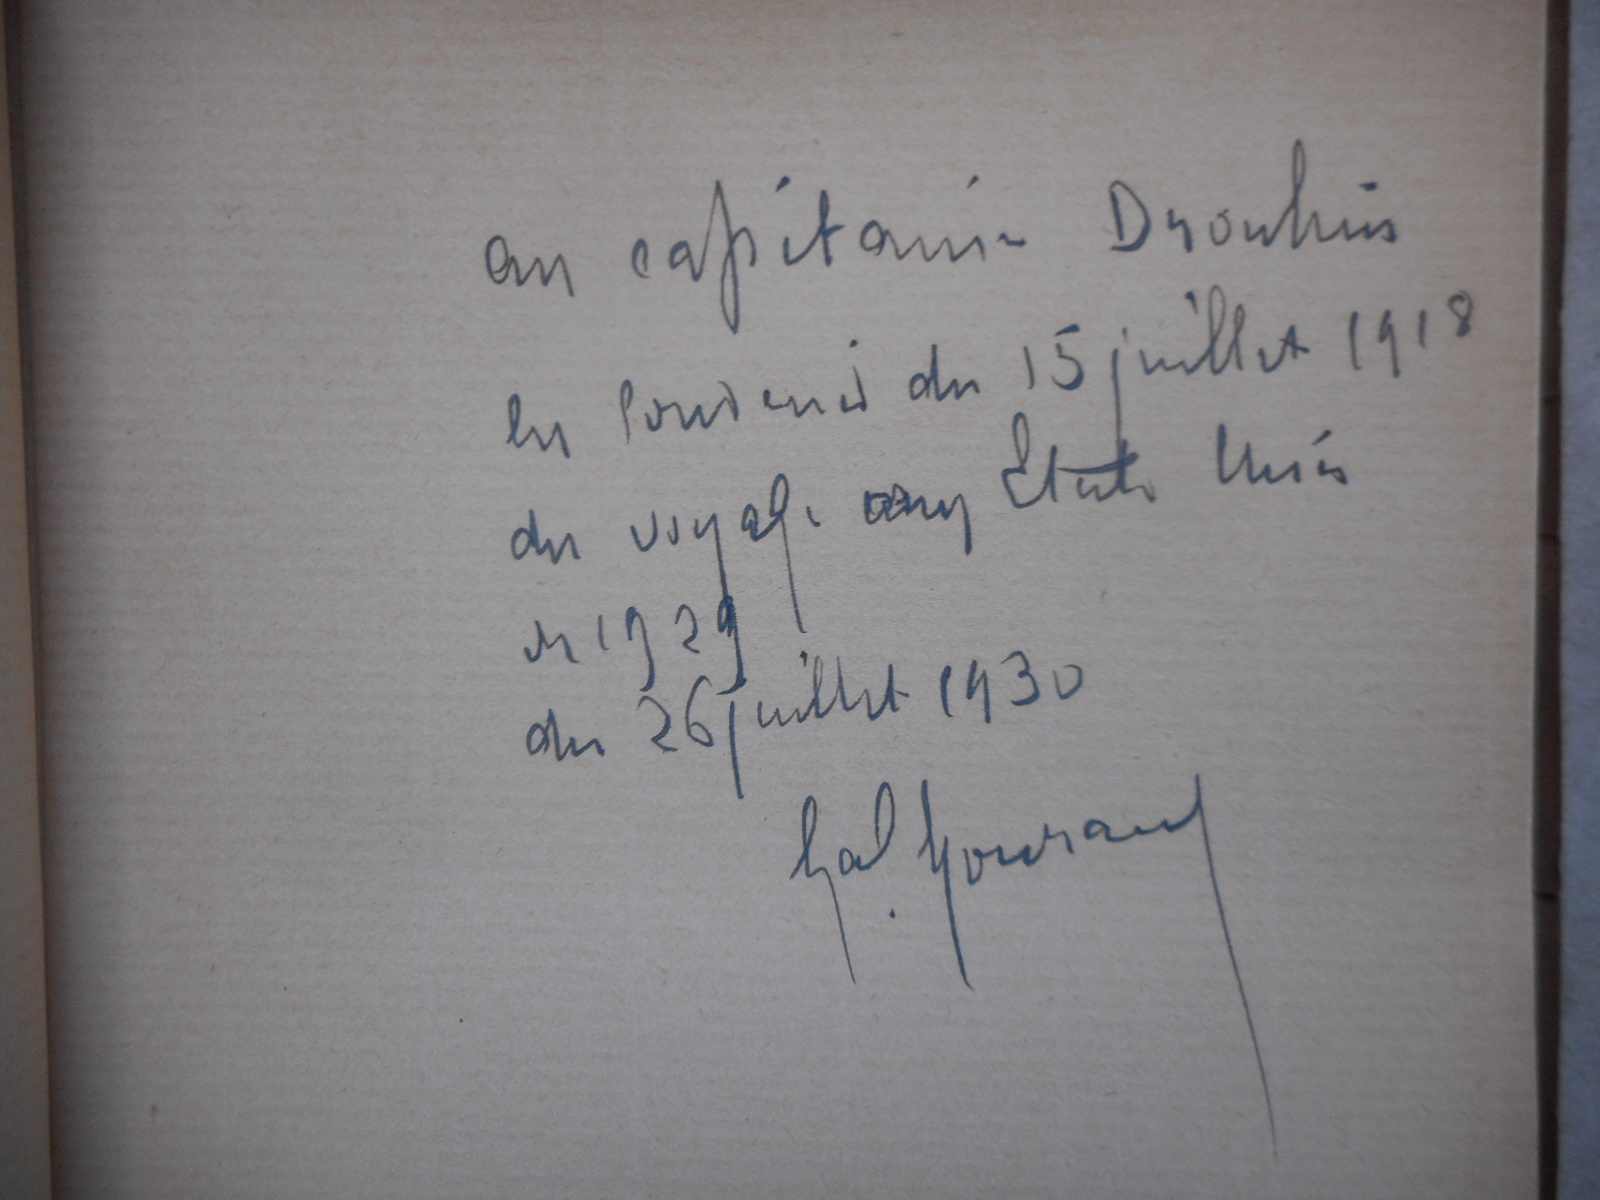 au capitaine Drouhin
en souvenir du 15 juillet 1918
du voyage aux Etats Unis
en 1929
du 26 juillet 1930
Gal. Gouraud